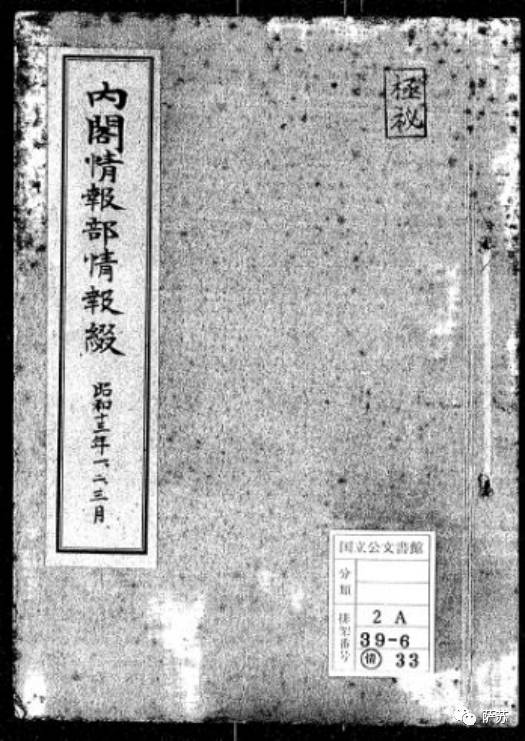 極
秘
内閣情報部情報綴
昭和十三年一、二、三月
国立公文書館
分類
排架番号
2 A
39-6
情 33
萨苏